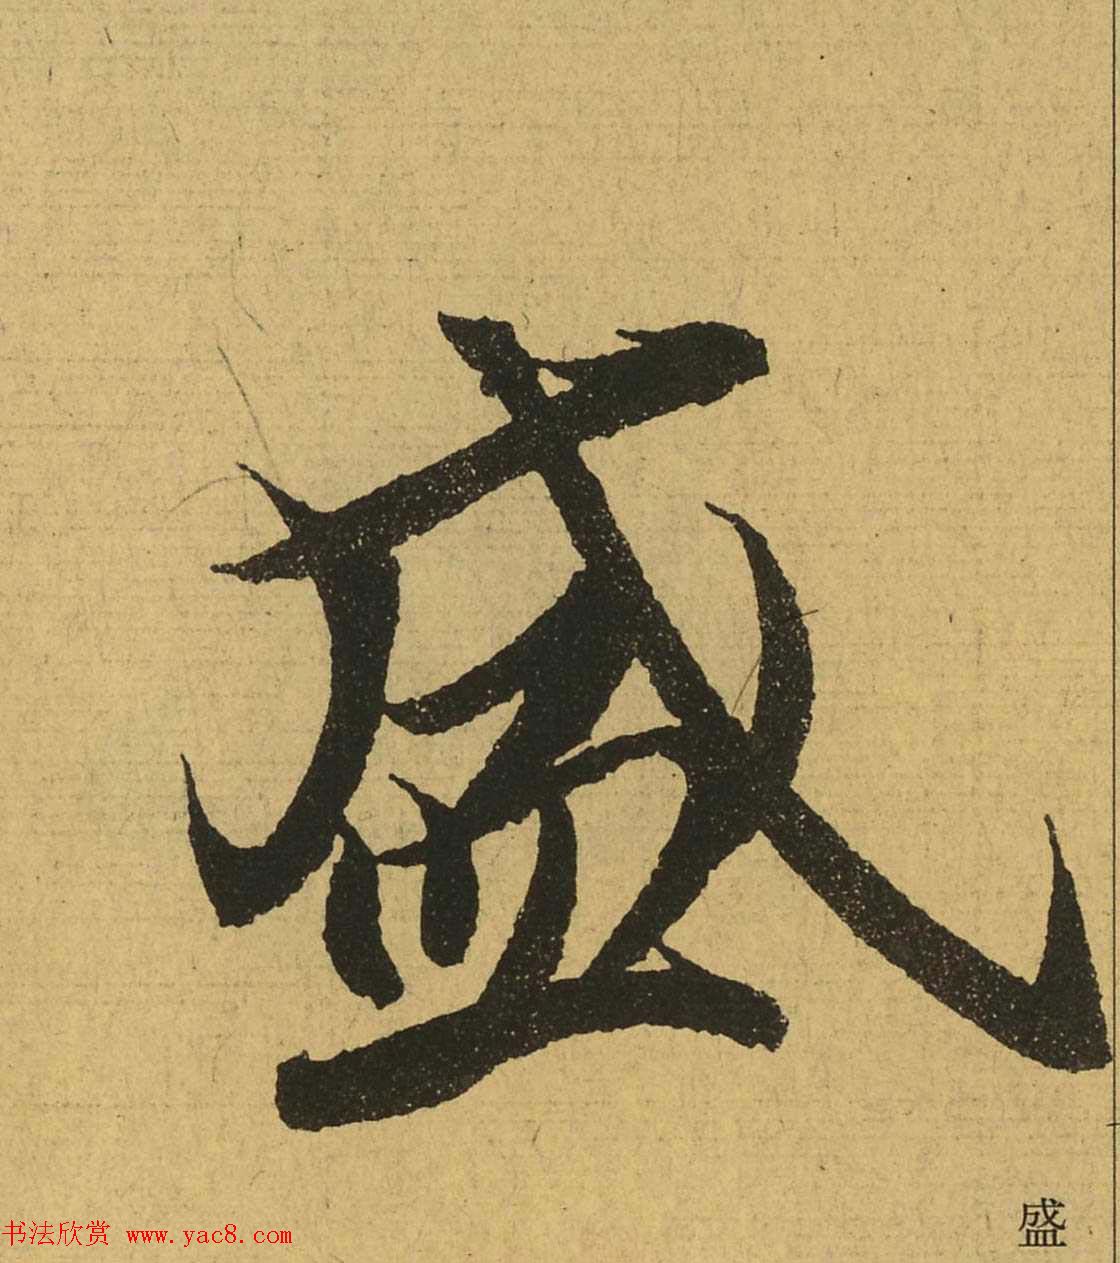 盛
盛
书法欣赏 www.yac8.com